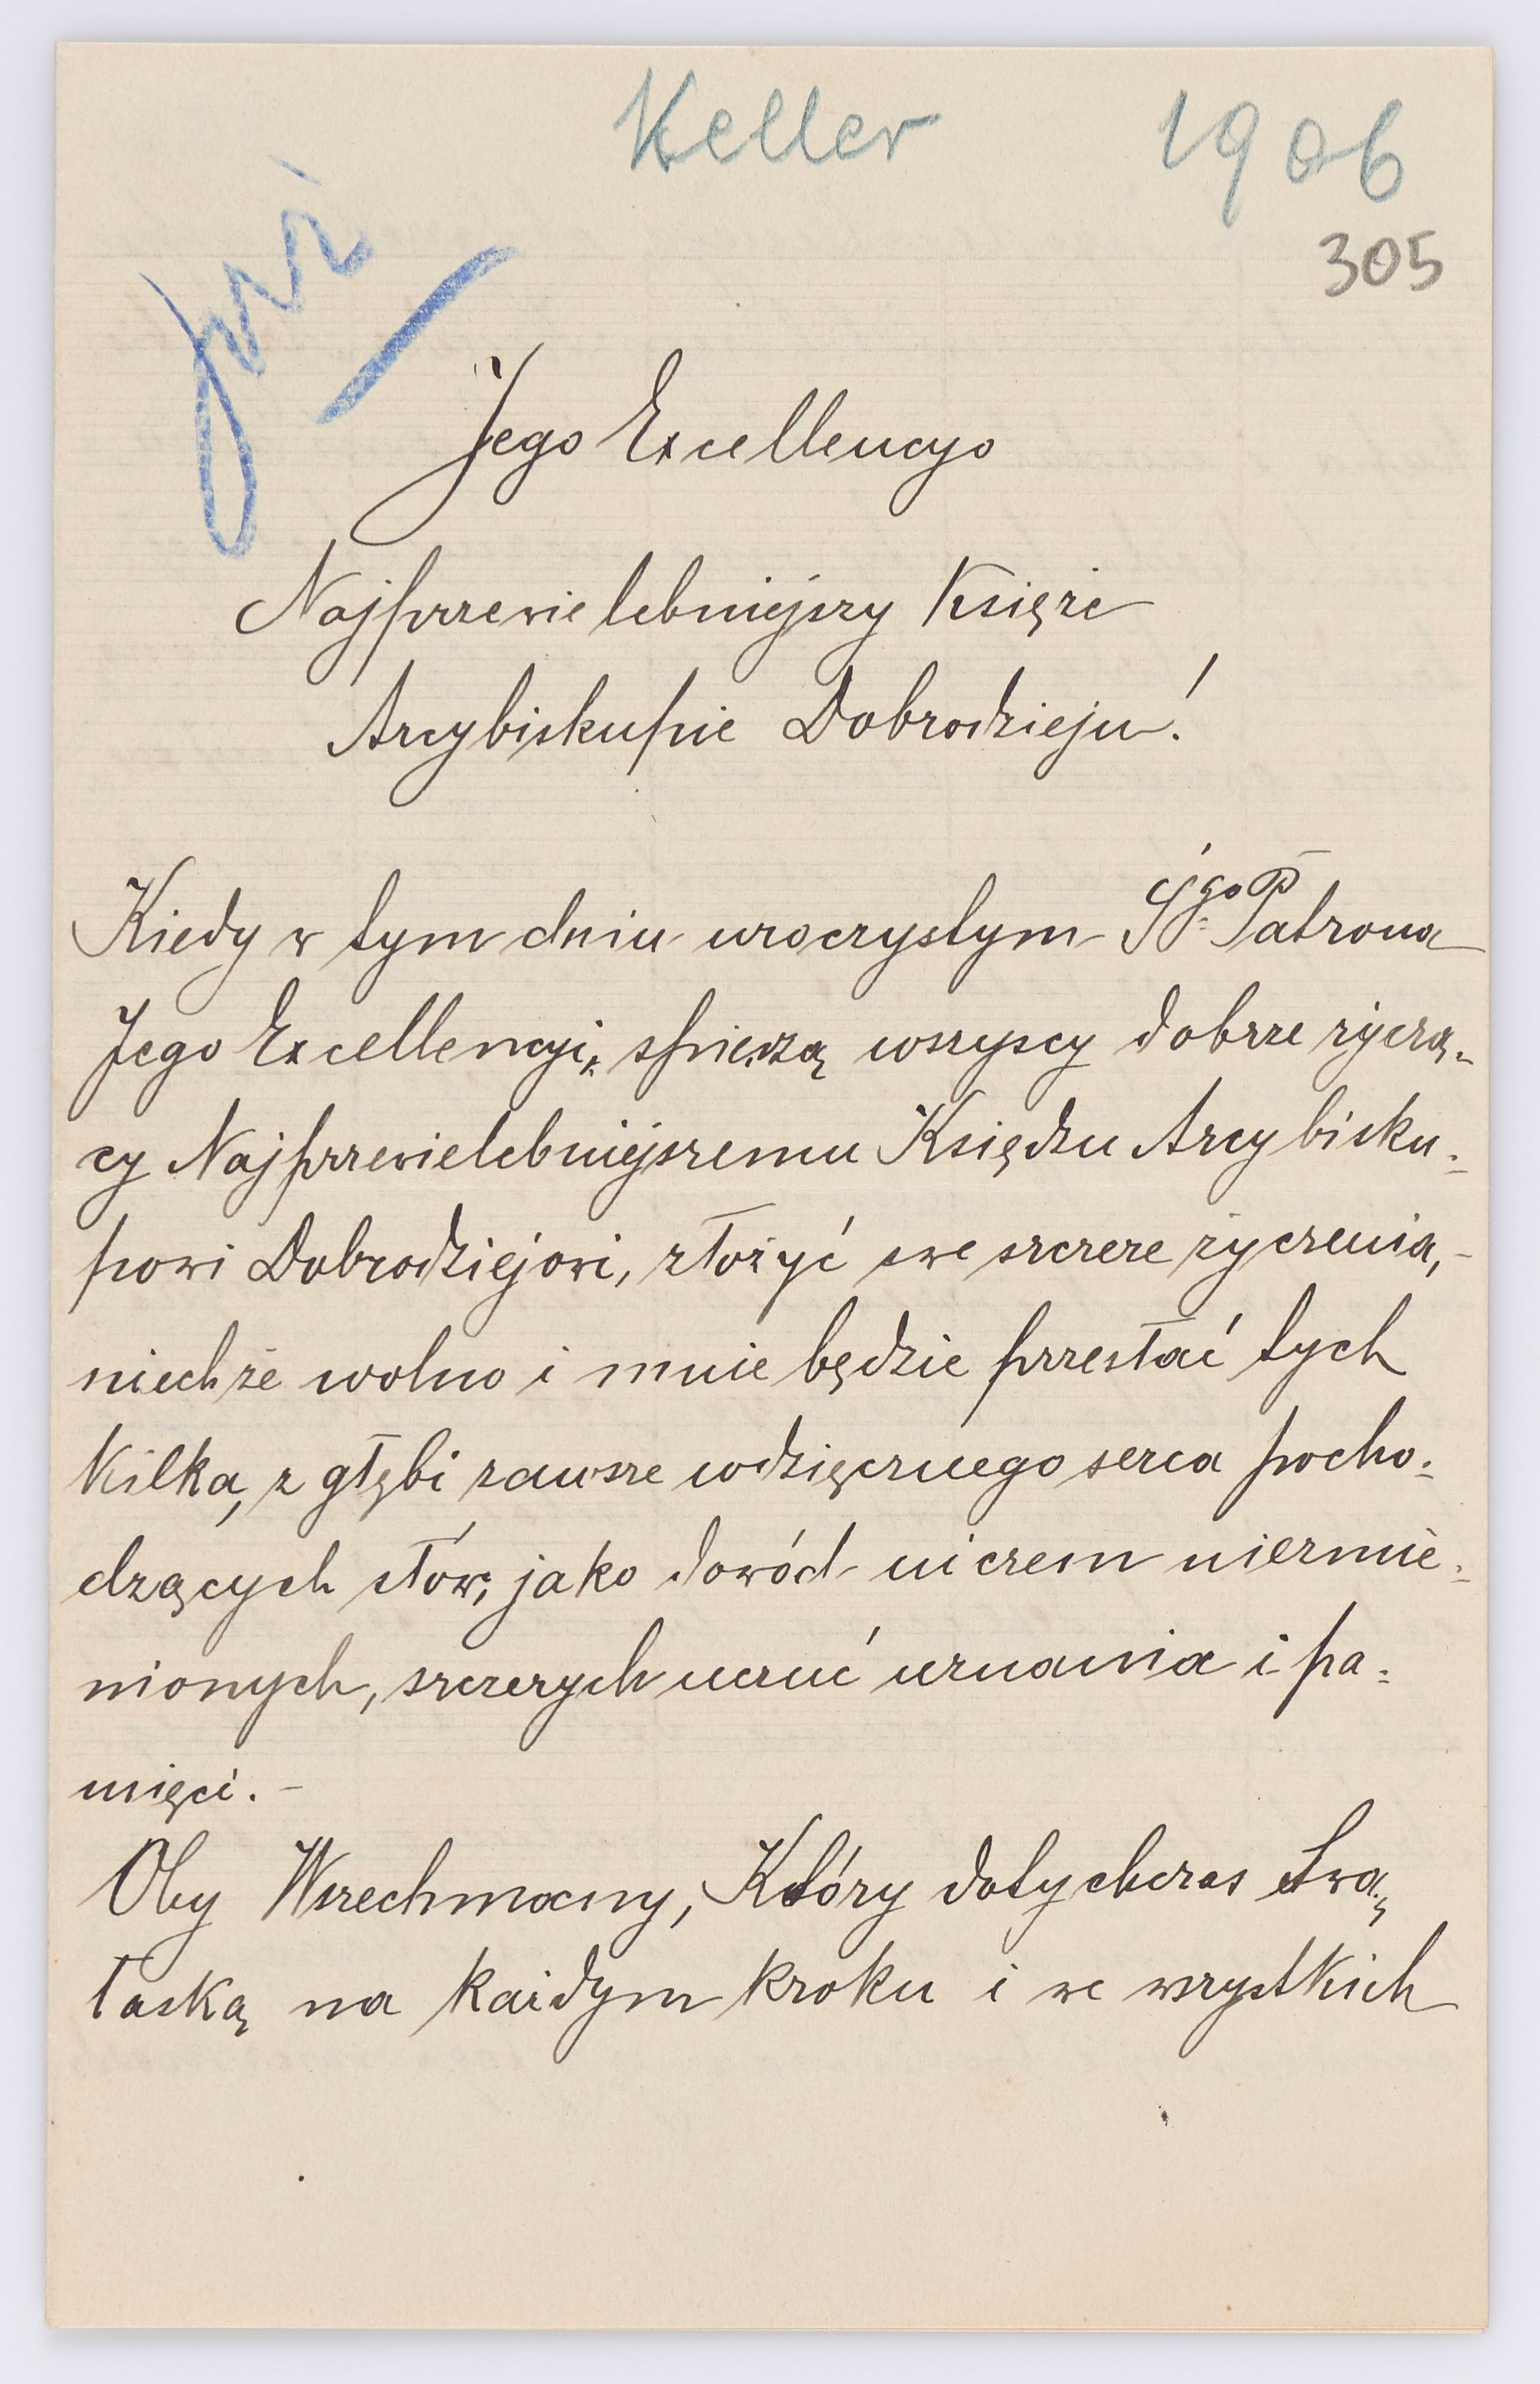 Keller 1906
305
Jego Excellencyo
Najprzewielebniejszy Księże
Arcybiskupie Dobrodzieju!
Kiedy w tym dniu uroczystym Śgo Patrona
Jego Excellencyi, spieszą wszyscy dobrze życzą-
cy Najprzewielebniejszemu Księdzu Arcybisku-
powi Dobrodziejowi, złożyć swe szczere życzenia, -
niechże wolno i mnie będzie przesłać tych
kilka, z głębi zawsze wdzięcznego serca pocho-
dzących słów, jako dowód niczem niezmie-
nionych, szczerych uczuć uznania i pa-
mięci. -
Oby Wszechmocny, Który dotychczas Swą
łaską na każdym kroku i we wszystkich